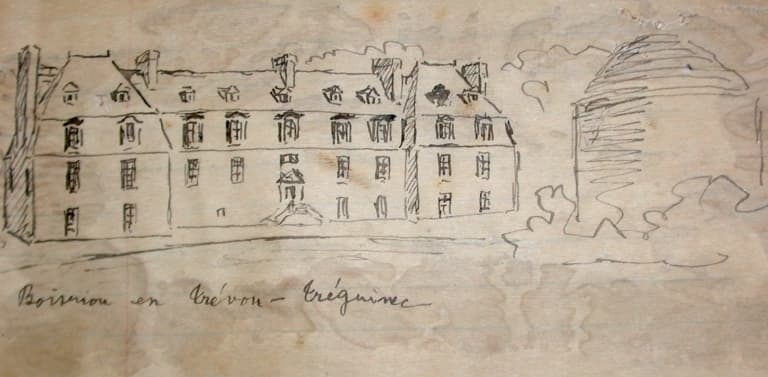 Boisriou en Trévou - Tréguinec